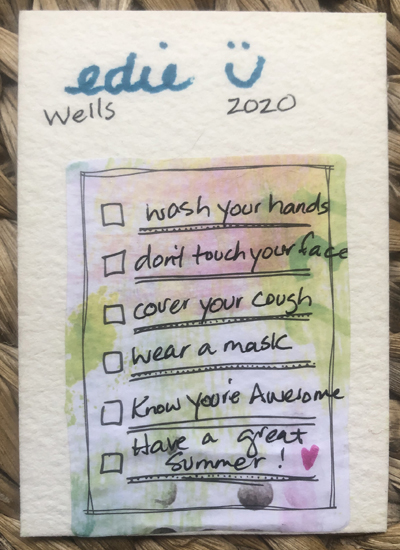 edie Ü
Wells 2020
wash your hands
don't touch your face
cover your cough
wear a mask
Know you're Awesome
Have a great
Summer!